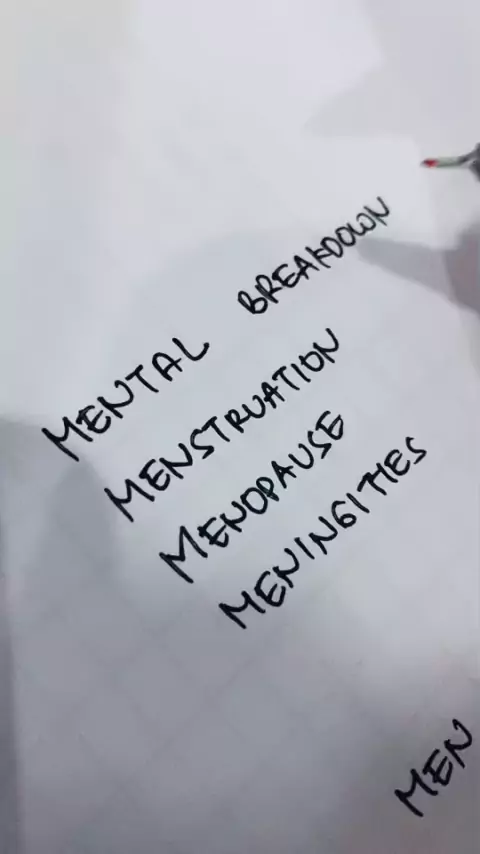 MENTAL BREAKDOWN
MENSTRUATION
MENOPAUSE
MENINGITIES
MEN